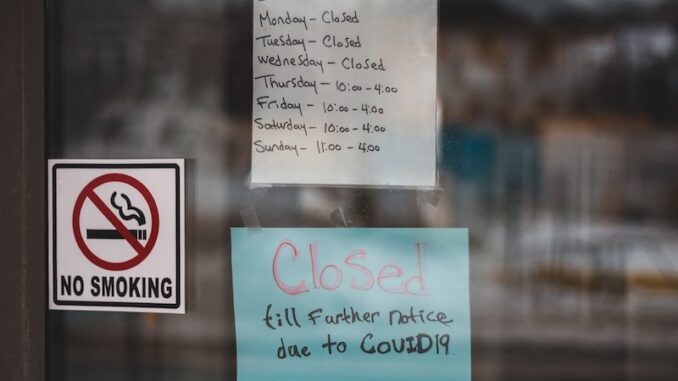 Monday - Closed
Tuesday - Closed
Wednesday - Closed
Thursday - 10:00 - 4:00
Friday - 10:00 - 4:00
Saturday - 10:00 - 4:00
Sunday - 11:00 - 4:00
NO SMOKING
Closed
till Farther notice
due to COVID19.